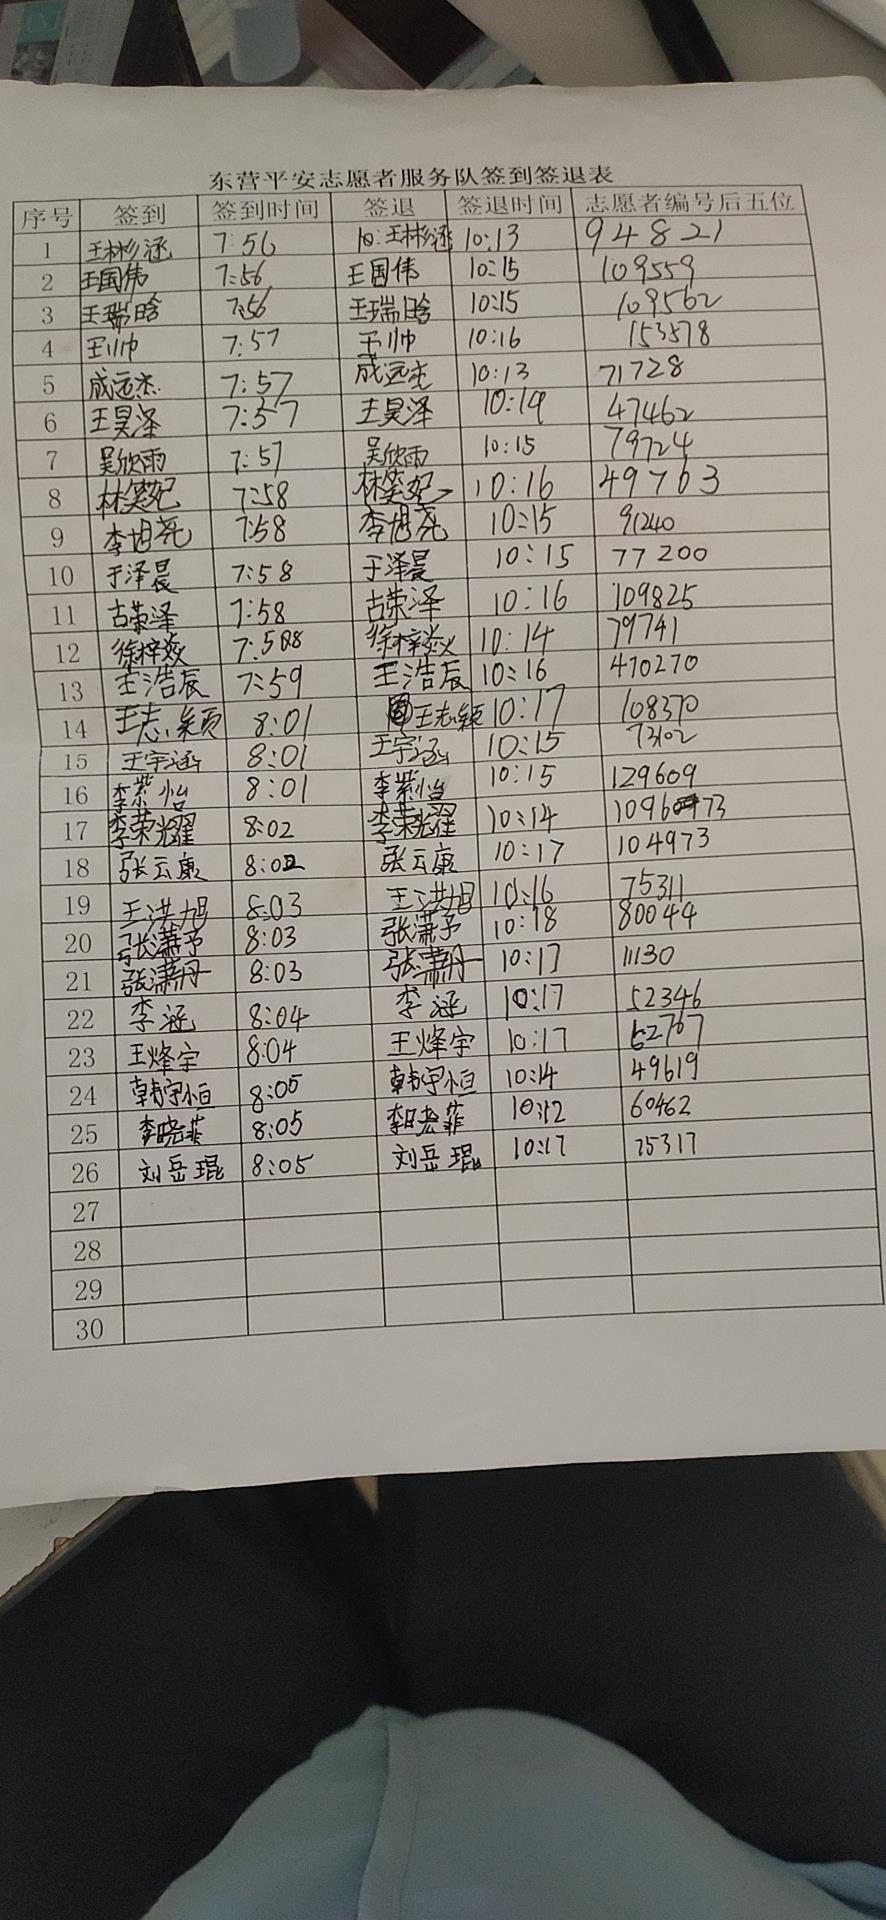 东营平安志愿者服务队签到签退表
序号 签到 签到时间 签退 签退时间 志愿者编号后五位
1 王彬涵 7:56 王彬涵 10:13 94821
2 王国伟 7:56 王国伟 10:15 109559
3 王瑞晗 7:56 王瑞晗 10:15 109562
4 王帅 7:57 王帅 10:16 153578
5 成远杰 7:57 成远杰 10:13 71728
6 王昊泽 7:57 王昊泽 10:19 47462
7 吴欣雨 7:57 吴欣雨 10:15 79724
8 林笑妃 7:58 林笑妃 10:16 49763
9 李旭尧 7:58 李旭尧 10:15 91240
10 于泽晨 7:58 于泽晨 10:15 77200
11 古荣泽 7:58 古荣泽 10:16 109825
12 徐梓焱 7:58 徐梓焱 10:14 79741
13 王浩辰 7:59 王浩辰 10:16 470270
14 王志颖 8:01 王志颖 10:17 108370
15 王宇涵 8:01 王宇涵 10:15 73102
16 李紫怡 8:01 李紫怡 10:15 129609
17 李荣耀 8:02 李荣耀 10:14
18 张云康 8:02 张云康 10:17 104973
19 王洪旭 8:03 王洪旭 10:16 75311
20 张潇予 8:03 张潇予 10:18 80044
21 张潇丹 8:03 张潇丹 10:17 11130
22 李涵 8:04 李涵 10:17 52346
23 王烽宇 8:04 王烽宇 10:17 62767
24 韩宇恒 8:05 韩宇恒 10:14 49619
25 李晓菲 8:05 李晓菲 10:12 60462
26 刘岳琨 8:05 刘岳琨 10:17 75317
27
28
29
30